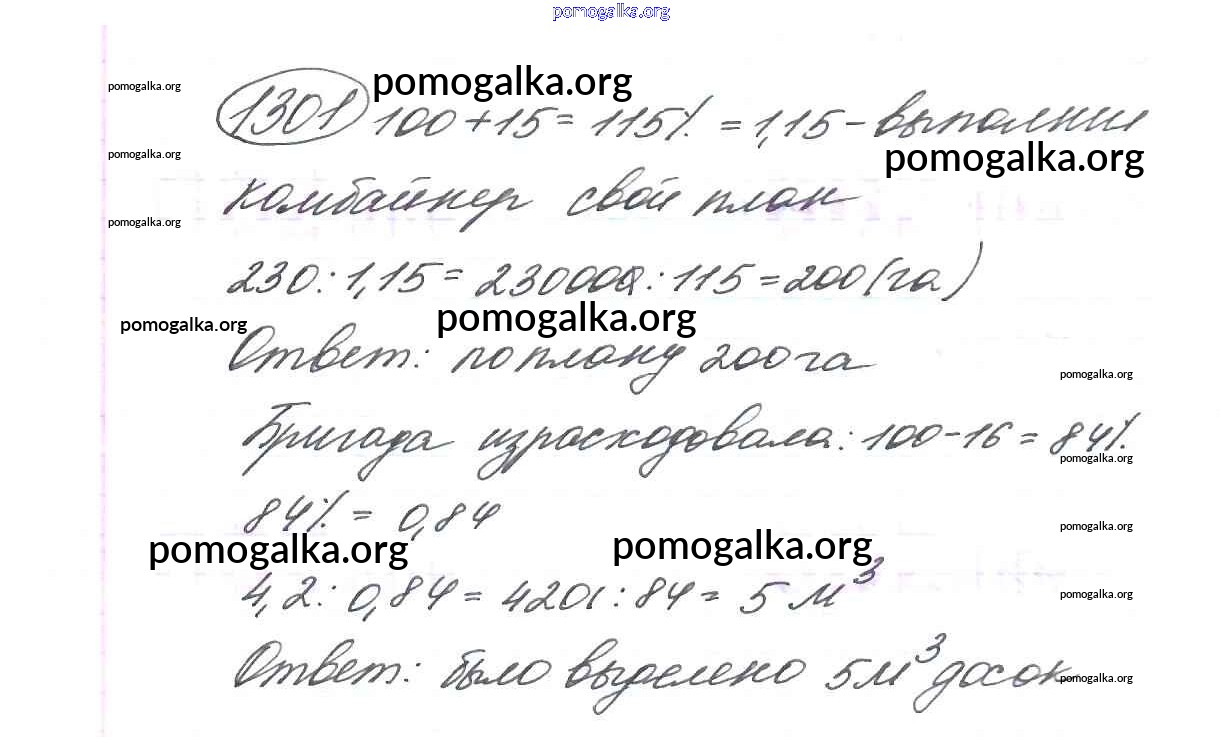 pomogalka.org
pomogalka.org
pomogalka.org
1301 100 + 15 = 115% = 1,15 - выполнил
pomogalka.org
pomogalka.org
комбайнер свой план
pomogalka.org
230 : 1,15 = 23000 : 115 = 200 (га)
pomogalka.org
pomogalka.org
Ответ: по плану 200 га
pomogalka.org
Бригада израсходовала: 100 - 16 = 84%
pomogalka.org
84% = 0,84
pomogalka.org
pomogalka.org
pomogalka.org
4,2 : 0,84 = 420 : 84 = 5 м³
pomogalka.org
Ответ: было выделено 5 м³ досок
pomogalka.org